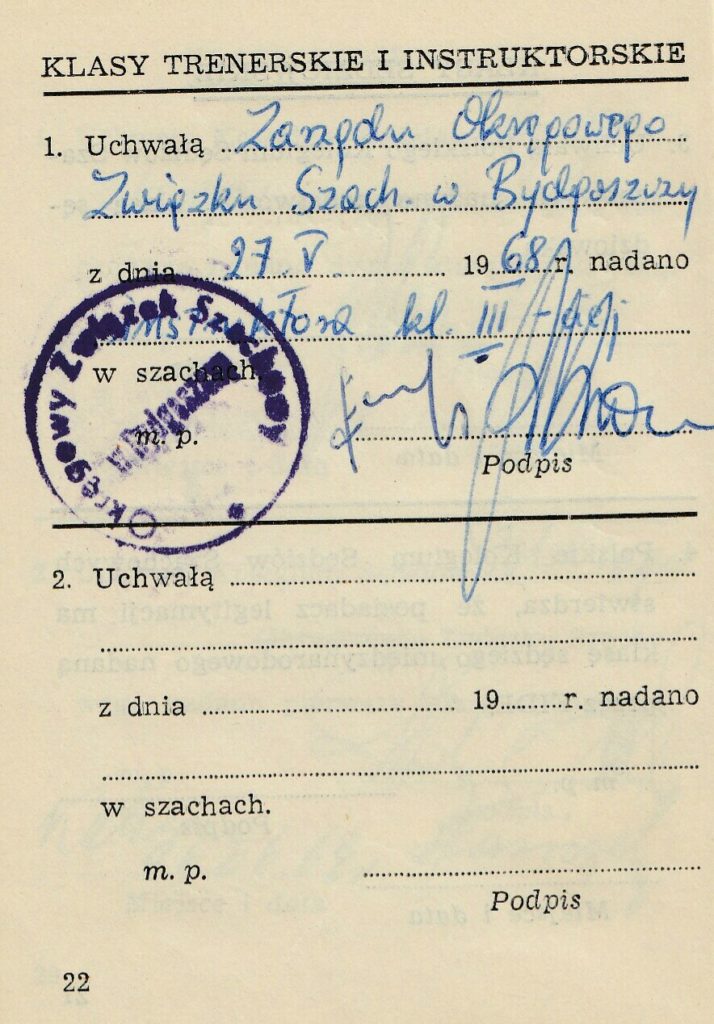 KLASY TRENERSKIE I INSTRUKTORSKIE
1. Uchwałą Zarządu Okręgowego
Związku Szach. w Bydgoszczy
z dnia 27.V 1968 r. nadano
instruktora kl. III-ciej
w szachach.
Okręgowy Związek Szachowy
w Bydgoszczy
m. p.
Podpis
2. Uchwałą
z dnia 19 r. nadano
w szachach.
m. p.
Podpis
22